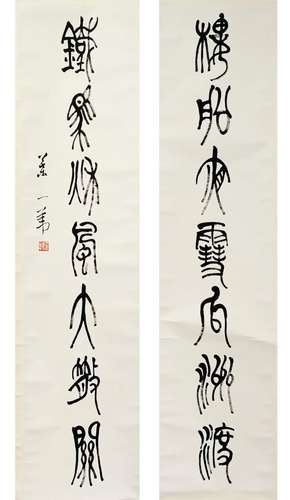 楼船夜雪瓜洲渡
鐵馬秋風大散關
葉一葦